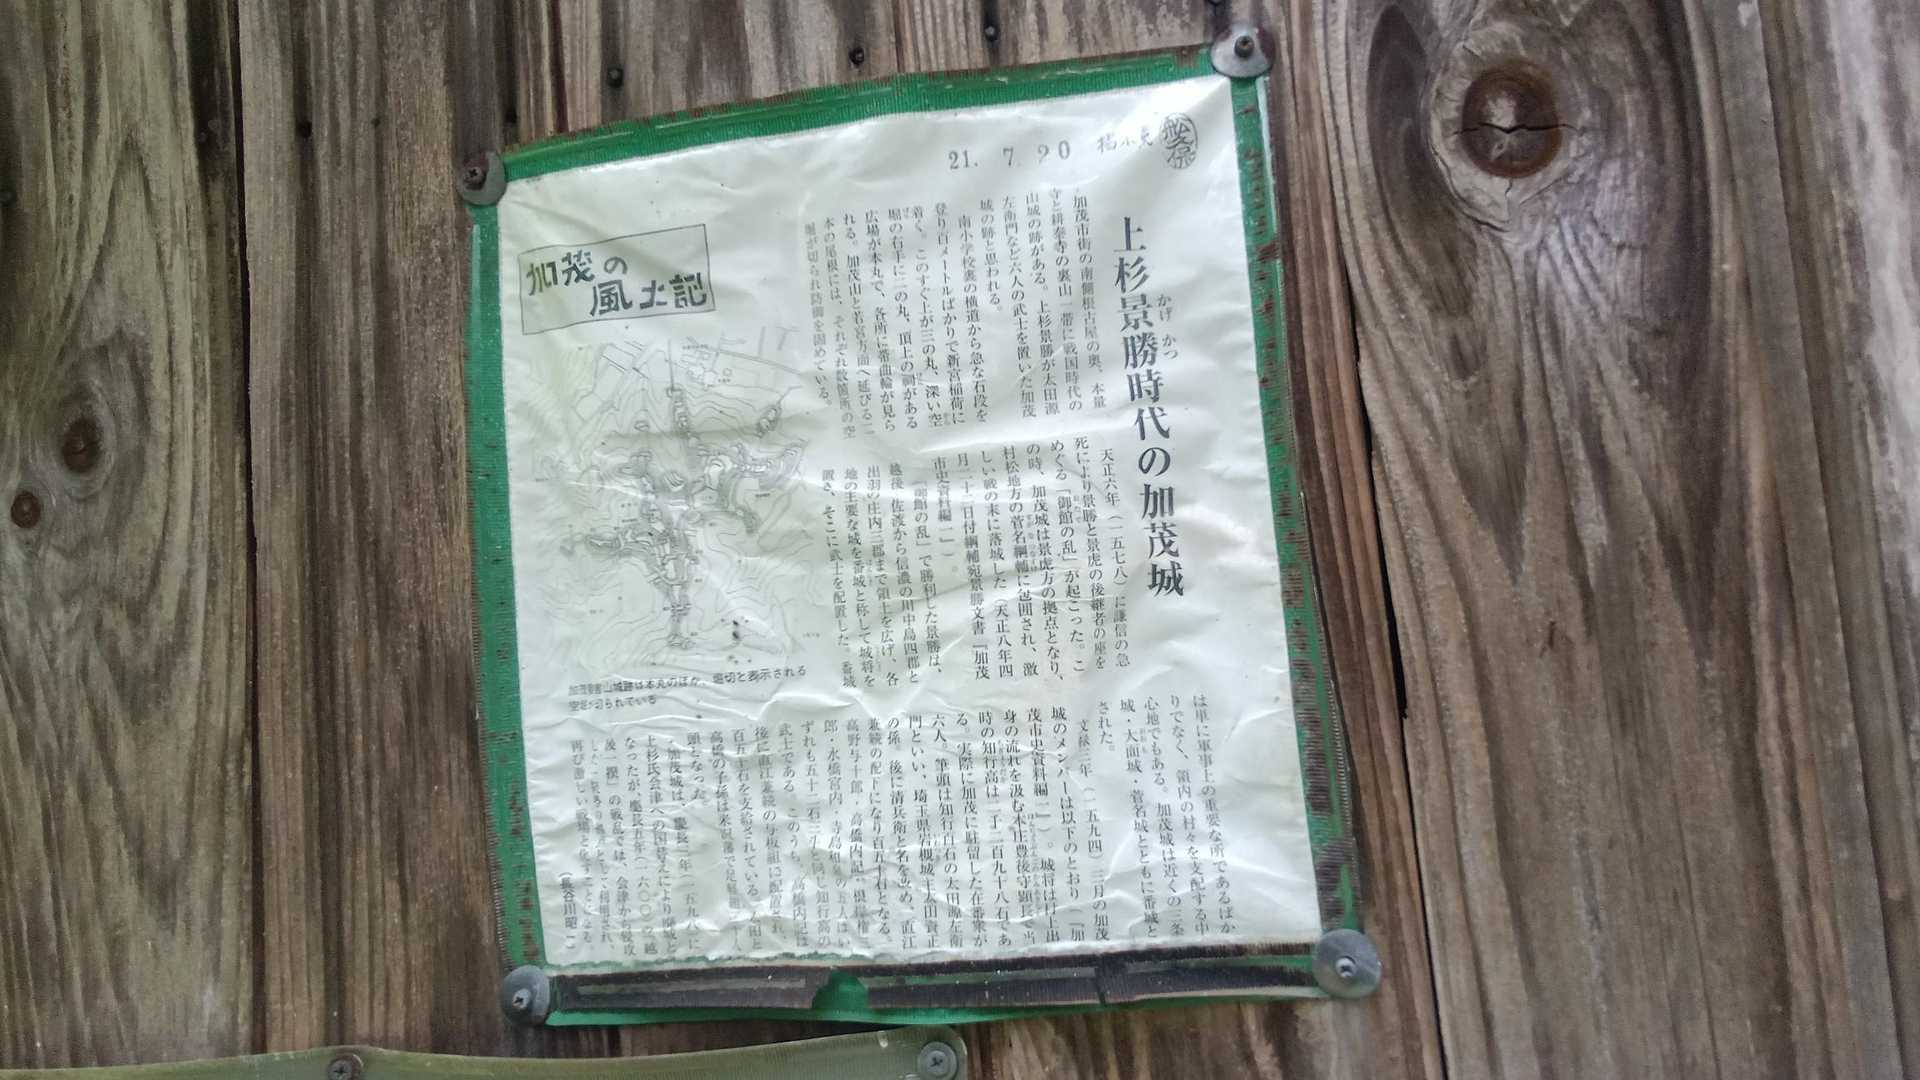 21. 7. 20
上杉景勝時代の加茂城
かげ かつ
加茂市街の南側根古屋の奥、本量
寺と耕泰寺の裏山一帯に戦国時代の
山城の跡がある。上杉景勝が太田源
左衛門など六人の武士を置いた加茂
城の跡と思われる。
南小学校裏の横道から急な石段を
登り百メートルばかりで新宮稲荷に
着く。このすぐ上が三の丸、深い空
堀の右手に二の丸、頂上の祠がある
広場が本丸で、各所に帯曲輪が見ら
れる。加茂山と若宮方面へ延びる二
本の尾根には、それぞれ数箇所の空
堀が切られ防御を固めている。
天正六年(一五七八)に謙信の急
死により景勝と景虎の後継者の座を
めぐる「御館の乱」が起こった。こ
の時、加茂城は景虎方の拠点となり、
村松地方の菅名綱輔に包囲され、激
しい戦の末に落城した(天正八年四
月二十二日付綱輔宛景勝文書『加茂
市史資料編一』)。
「御館の乱」で勝利した景勝は、
越後・佐渡から信濃の川中島四郡と
出羽の庄内三郡まで領土を広げ、各
地の主要な城を番城と称して城将を
置き、そこに武士を配置した。番城
は単に軍事上の重要な所であるばか
りでなく、領内の村々を支配する中
心地でもある。加茂城は近くの三条
城・大面城・菅名城とともに番城と
された。
文禄三年(一五九四)三月の加茂
城のメンバーは以下のとおり(『加
茂市史資料編一』)。城将は村上出
身の流れを汲む本庄豊後守顕長で当
時の知行高は二千二百九十八石であ
る。実際に加茂に駐留した在番衆が
六人。筆頭は知行百石の太田源左衛
門といい、埼玉県岩槻城主太田資正
の係。後に清兵衛と名を改め、直江
兼続の配下になり百五十石となる。
高野与十郎・高橋内記・
郎・水橋宮内・寺島の五人はい
ずれも五十二石三斗と同じ知行高の
武士である。このうち、高橋内記は
後に直江兼続の与板組に配置され、
百五十石を支給されている。太田と
高橋の子孫は米沢藩で足軽組
頭となった。
加茂城は、慶長三年(一五九八)に
上杉氏会津への国替えにより廃城と
なったが、慶長五年(一六〇〇)の越
後一揆」の戦乱では、会津から侵攻
再び激しい戦場と化すこととなる。
(長谷川昭一)
加茂の
風土記
加茂要害山城跡は本丸のほか、堀切と表示される
空堀が切られている